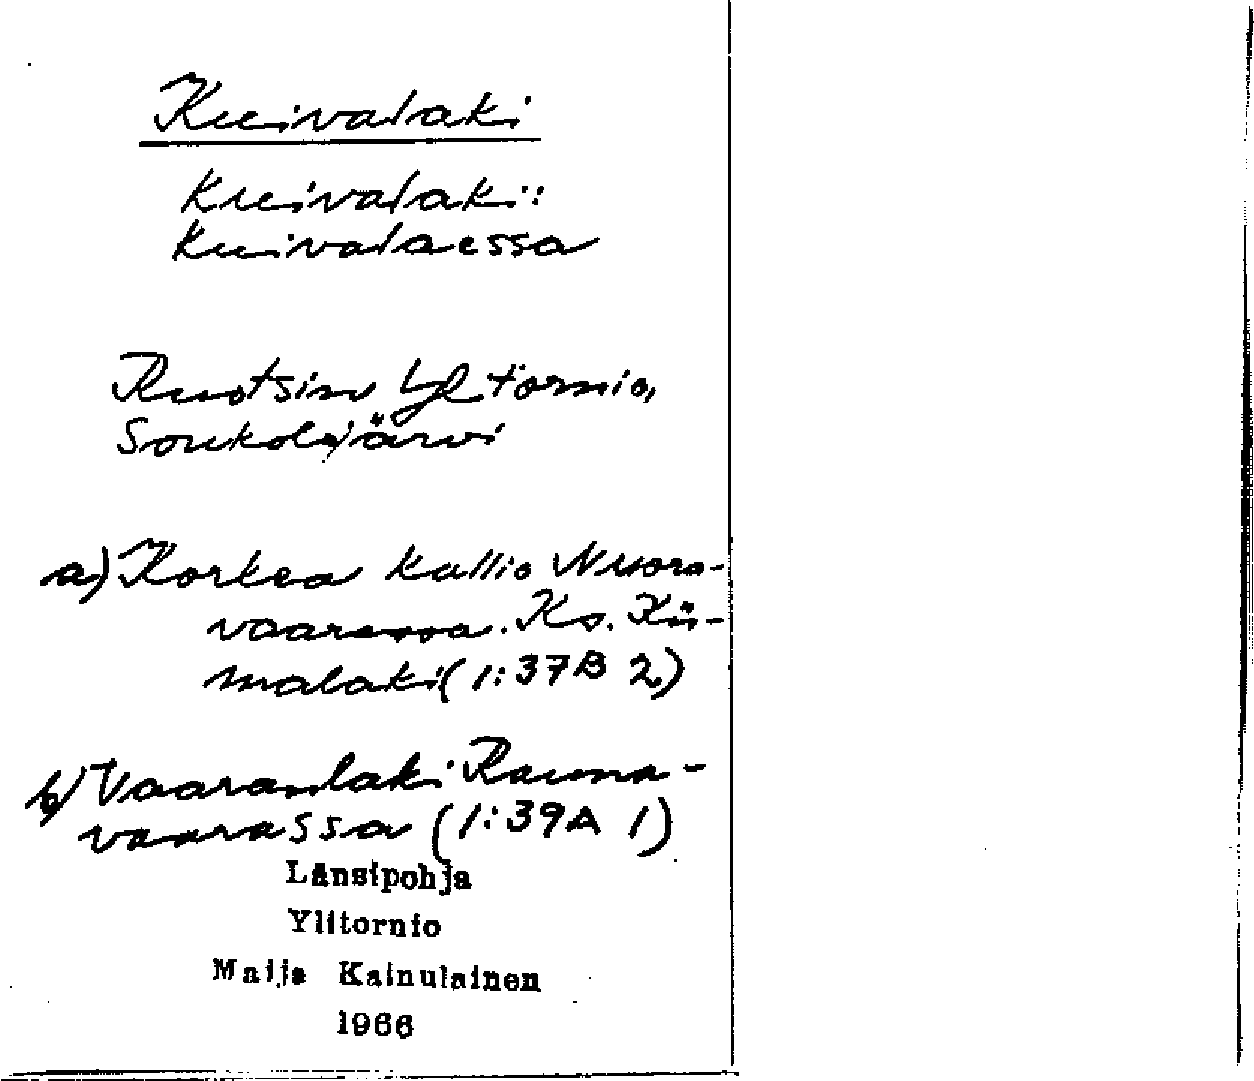 Kuivalaki
Kuivalaki:
Kuivalaessa
Ruotsin Yl tornio,
Soukolojärvi
a) Korkea kallio Nuora-
vaarassa. Ks. Kii-
malaki (1:37B 2)
b) Vaaranlaki Rauma-
vaarassa (1:39A 1)
Länsipohja
Ylitornio
Maija Kainulainen
1966